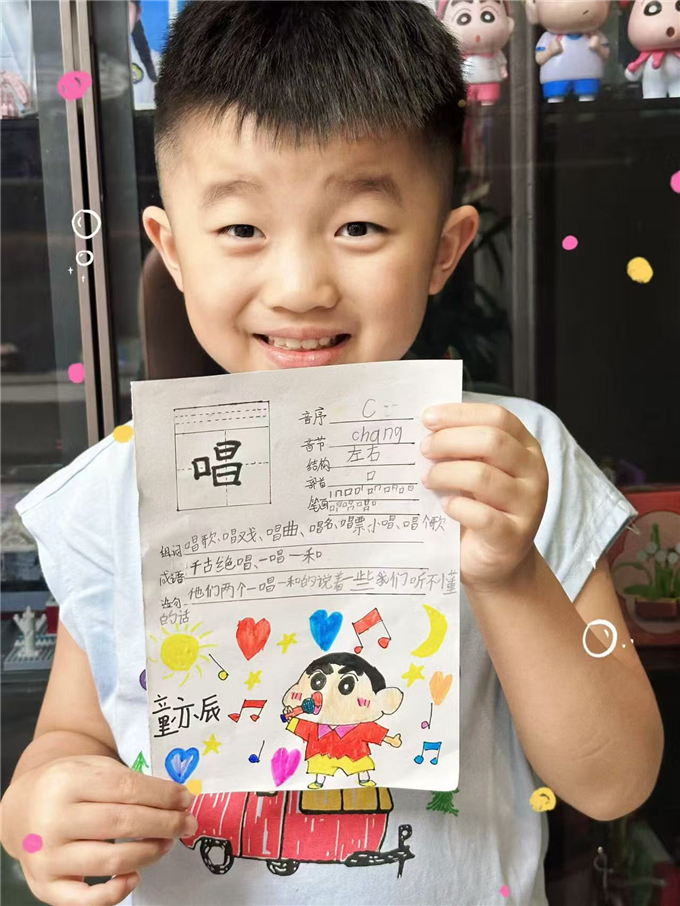 唱
音序 C
音节 chang
结构 左右
部首 口
笔画
组词 唱歌、唱戏、唱曲、唱名、唱票、小唱、唱个歌
成语 千古绝唱、一唱一和
造句 他们两个一唱一和的说着一些我们听不懂
的话
童亦辰